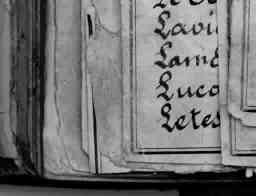 Lavi
Lamb
Luco
Letes